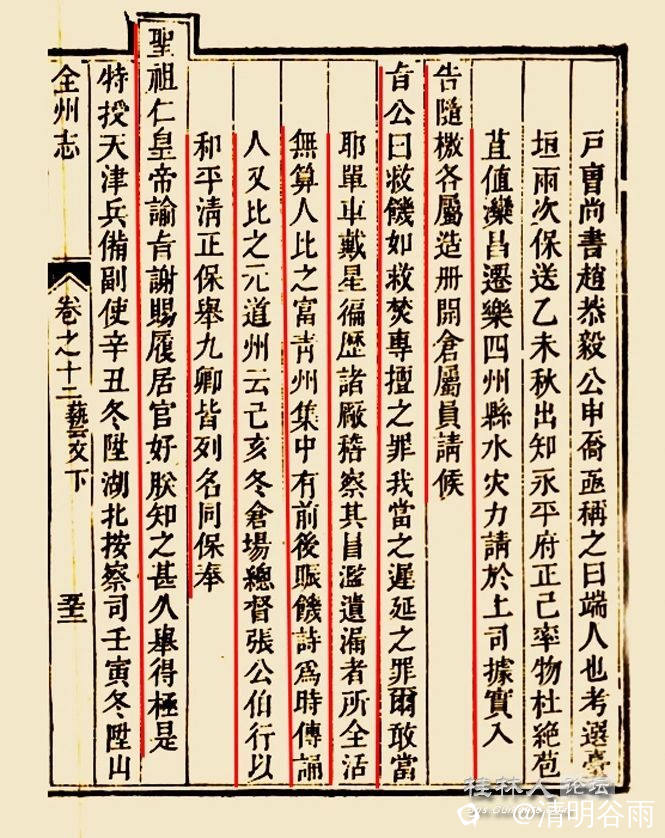 戶曹尚書趙恭毅公申喬亟稱之曰端人也考選臺
垣兩次保送乙未秋出知永平府正己率物杜絶苞
苴值灤昌遷樂四州縣水灾力請於上司據實入
告隨檄各屬造冊開倉屬員請候
旨公曰救饑如救焚專擅之罪我當之遲延之罪爾敢當
耶單車戴星徧歷諸厰稽察其冒濫遺漏者所全活
無算人比之富青州集中有前後賑饑詩爲時傳誦
人又比之元道州云己亥冬倉塲總督張公伯行以
和平清正保舉九卿皆列名同保奉
聖祖仁皇帝諭旨謝賜履居官好朕知之甚久舉得極是
特授天津兵備副使辛丑冬陞湖北按察司壬寅冬陞山
全州志
卷之十二藝文下
桂林人论坛
@清明谷雨